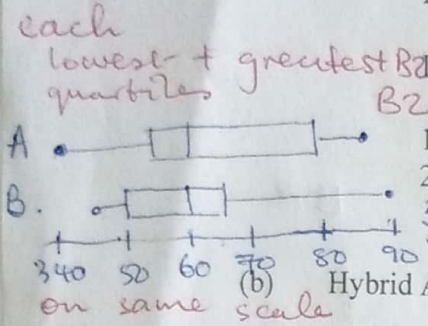 each
lowest + greatest B2
quartiles B2
A
B.
340 50 60 70 80 90
(b) Hybrid A
on same scale